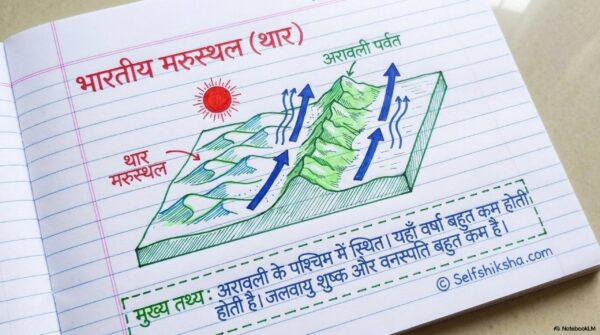 भारतीय मरुस्थल (थार)
अरावली पर्वत
थार
मरुस्थल
मुख्य तथ्य : अरावली के पश्चिम में स्थित। यहाँ वर्षा बहुत कम होती
होती है। जलवायु शुष्क और वनस्पति बहुत कम है।
© Selfshiksha.com
NotebookLM